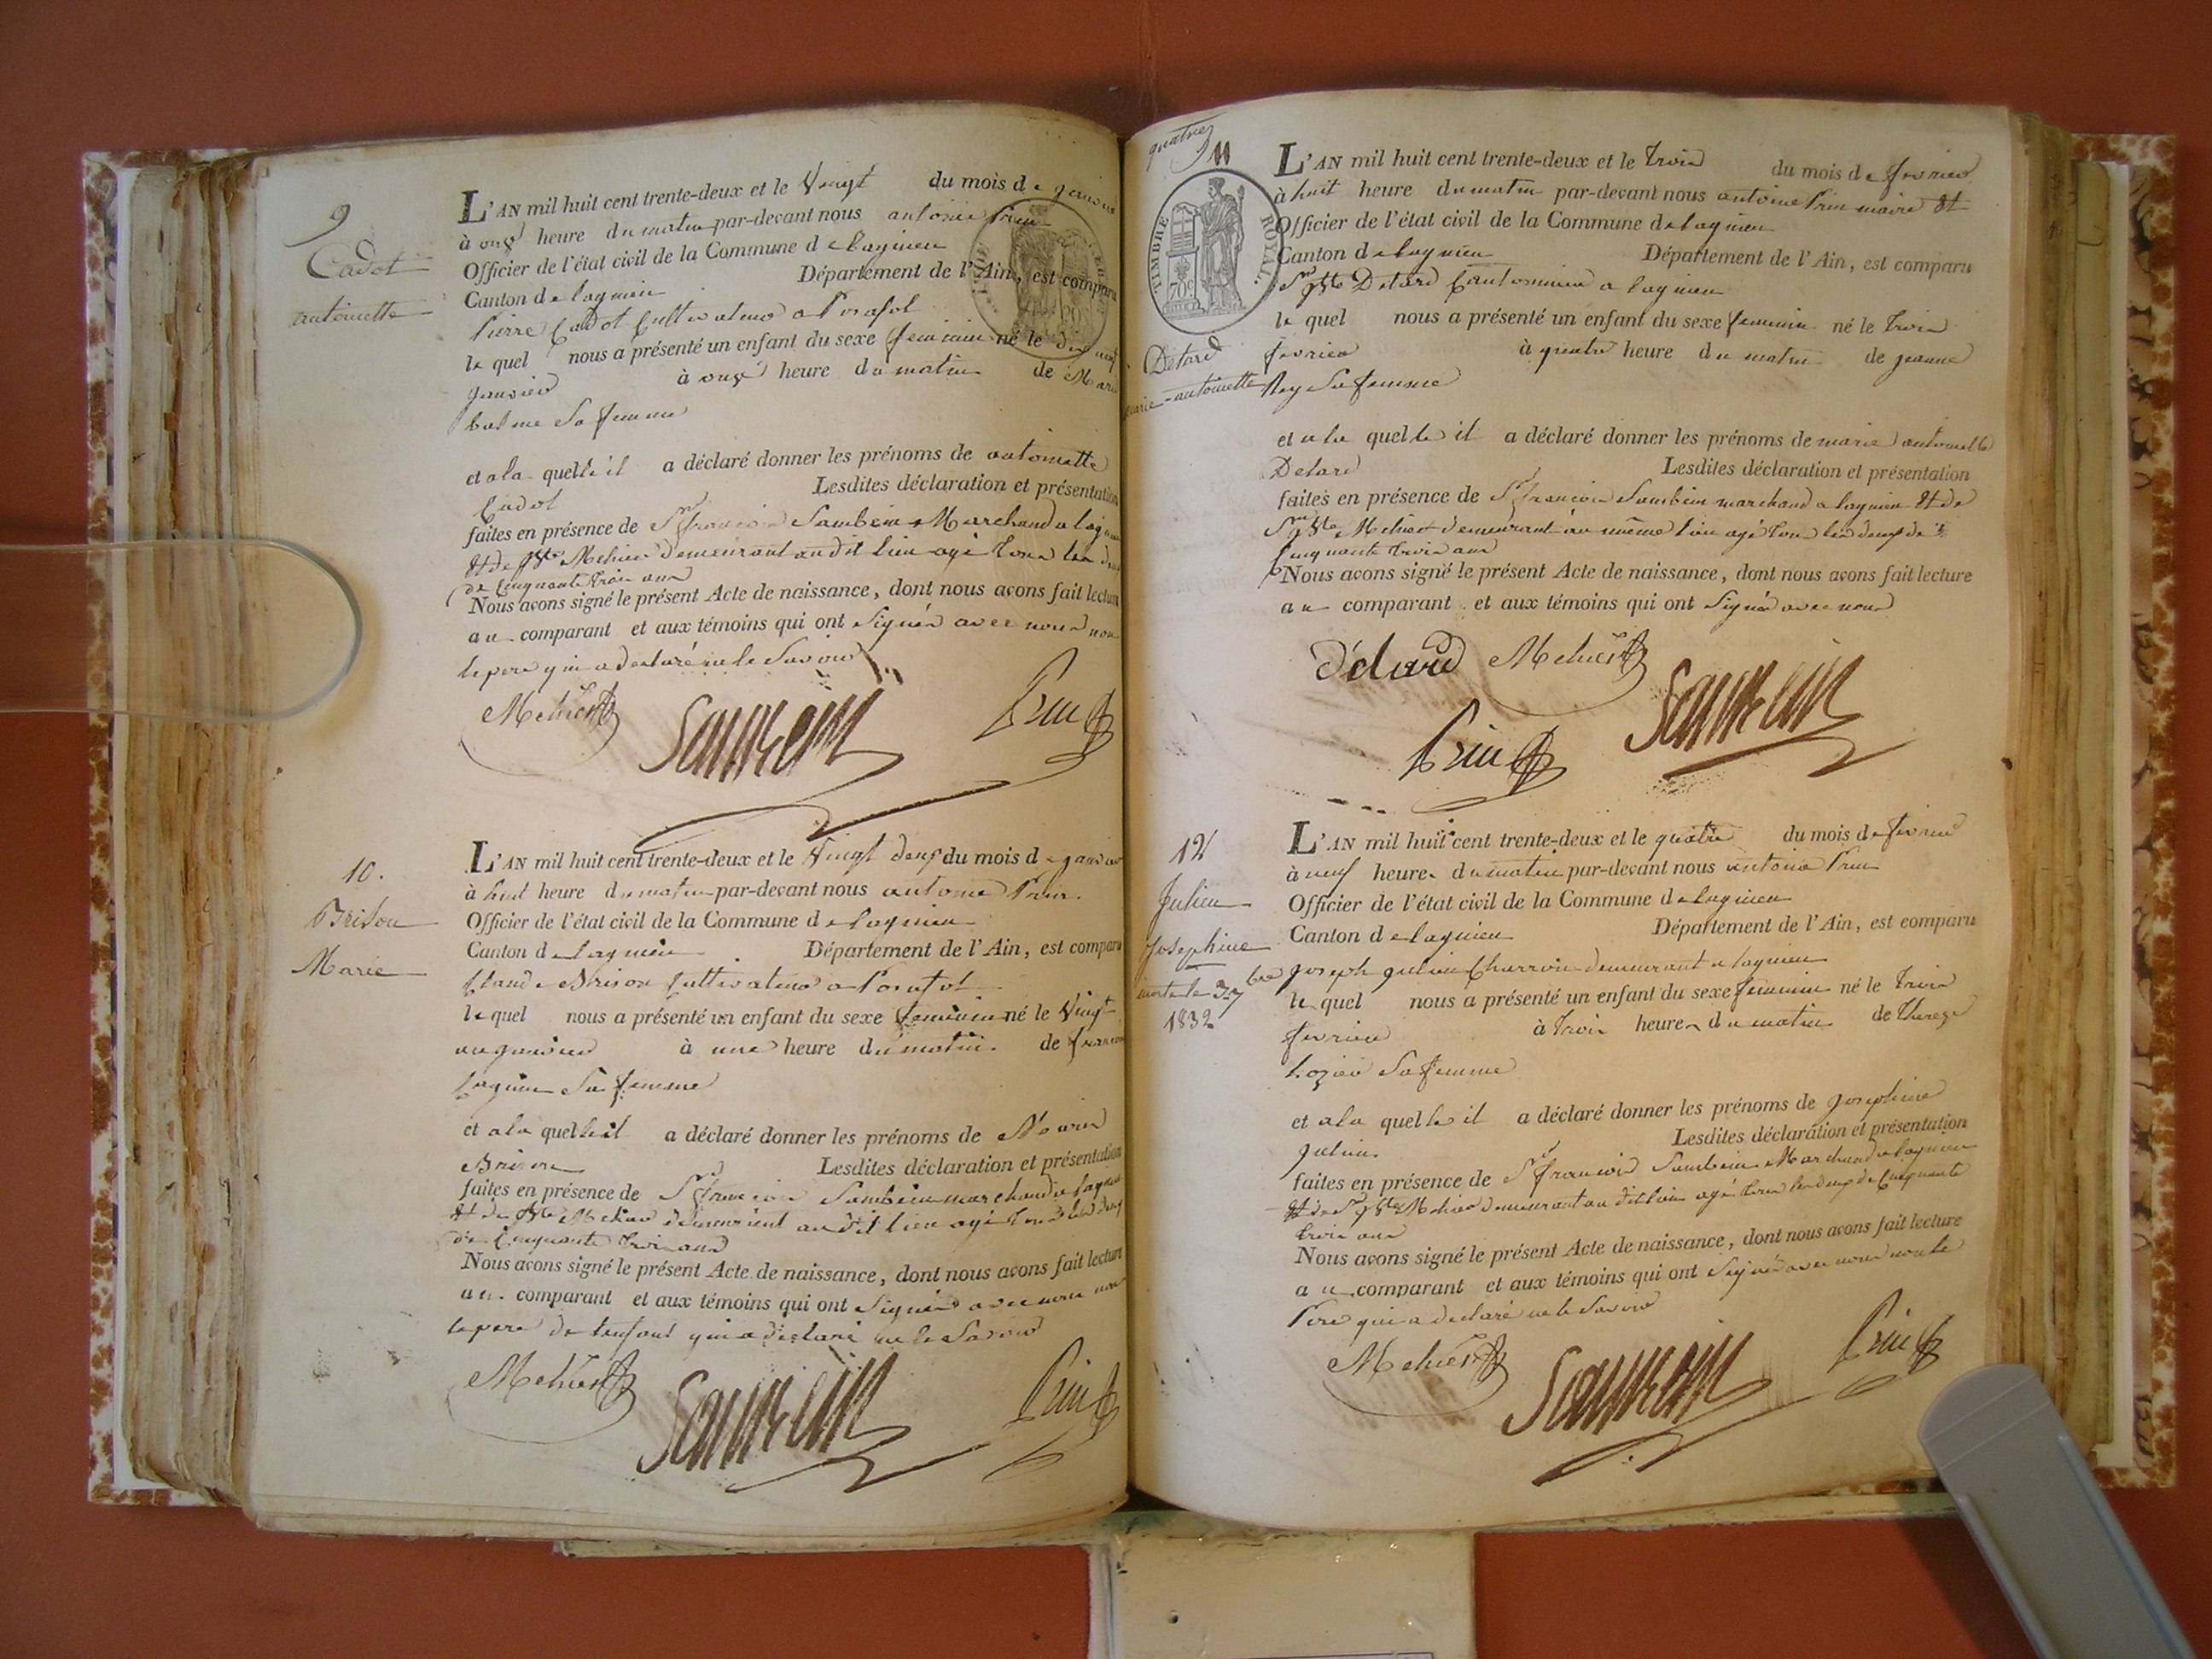 9
Cadot
antoinette
L'AN mil huit cent trente-deux et le Vingt du mois de janvier
à onze heure du matin par-devant nous antoine Prin
Officier de l'état civil de la Commune de lagnieu
Canton de lagnieu Département de l'Ain, est comparu
Pierre Cadot Cultivateur a Posafol
le quel nous a présenté un enfant du sexe feminin né le dix neuf
janvier à onze heure du matin de Marie
balme Sa femme
et a la quelle il a déclaré donner les prénoms de antoinette
Cadot Lesdites déclaration et présentation
faites en présence de Sr françois Sambein Marchand a lagnieu
Et de Jh Bte Mehier demeurant au dit lieu agé tous les deux
de Cinquante trois ans
Nous avons signé le présent Acte de naissance, dont nous avons fait lecture
au comparant et aux témoins qui ont Signés avec nous non
le pere qui a declaré ne le Savoir
Mehier
Sambein
Prin
10.
Brison
Marie
L'AN mil huit cent trente-deux et le Vingt deux du mois de janvier
à huit heure du matin par-devant nous antoine Prin
Officier de l'état civil de la Commune de lagnieu
Canton de lagnieu Département de l'Ain, est comparu
Claude Brison Cultivateur a Posafol
le quel nous a présenté un enfant du sexe feminin né le Vingt
un janvier à une heure du matin de
Sa femme
et a la quelle il a déclaré donner les prénoms de Marie
Brison Lesdites déclaration et présentation
faites en présence de Sr françois Sambein marchand a lagnieu
Et de Mehier demeurant au dit lieu agé tous les deux
de Cinquante trois ans
Nous avons signé le présent Acte de naissance, dont nous avons fait lecture
au comparant et aux témoins qui ont Signés avec nous non
le pere de lenfant qui a declaré ne le Savoir
Mehier
Sambein
Prin
quatre
11
TIMBRE ROYAL
70c
Detard
marie-antoinette
L'AN mil huit cent trente-deux et le trois du mois de fevrier
à huit heure du matin par-devant nous antoine Prin maire Et
Officier de l'état civil de la Commune de lagnieu
Canton de lagnieu Département de l'Ain, est comparu
Detard Cantonnier a lagnieu
le quel nous a présenté un enfant du sexe feminin né le trois
fevrier à quatre heure du matin de jeanne
Rey Sa femme
et a la quelle il a déclaré donner les prénoms de marie antoinette
Detard Lesdites déclaration et présentation
faites en présence de Sr françois Sambein marchand a lagnieu Et de
Mehier demeurant au même lieu agé tous les deux de
Cinquante trois ans
Nous avons signé le présent Acte de naissance, dont nous avons fait lecture
au comparant et aux témoins qui ont Signés avec nous
Détard
Mehier
Sambein
Prin
12
Julien
Josephine
morte le 7bre
1832
L'AN mil huit cent trente-deux et le quatre du mois de fevrier
à neuf heures du matin par-devant nous antoine Prin
Officier de l'état civil de la Commune de lagnieu
Canton de lagnieu Département de l'Ain, est comparu
joseph julien Charron demeurant a lagnieu
le quel nous a présenté un enfant du sexe feminin né le trois
fevrier à trois heures du matin de Therese
Sa femme
et a la quelle il a déclaré donner les prénoms de josephine
julien Lesdites déclaration et présentation
faites en présence de Sr françois Sambein Marchand a lagnieu
Et de Sr Mehier demeurant au dit lieu agé tous les deux de Cinquante
trois ans
Nous avons signé le présent Acte de naissance, dont nous avons fait lecture
au comparant et aux témoins qui ont Signés avec nous non le
Pere qui a declaré ne le Savoir
Mehier
Sambein
Prin